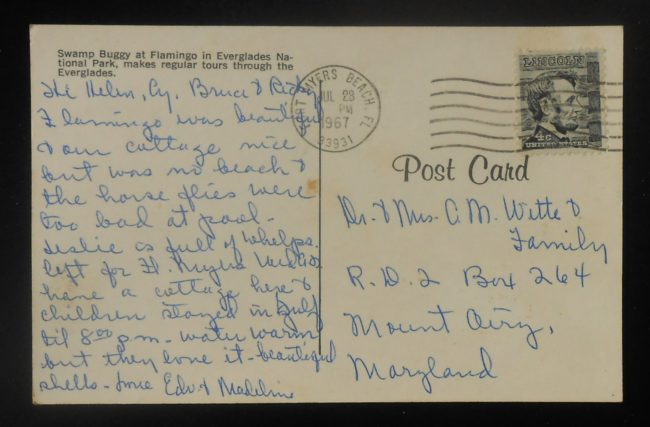 Swamp Buggy at Flamingo in Everglades Na-
tional Park, makes regular tours through the
Everglades.
Hi Helen, Cy, Bruce & Ricky
Flamingo was beautiful
& our cottage nice
but was no beach &
the horse flies were
too bad at pool -
Leslie is full of whelps.
left for Ft. Myers
have a cottage here &
children stayed in Gulf
til 8:00 p.m. - water warm
but they love it - beautiful
shells - Love Edw. & Madeline
FORT MYERS BEACH, FL
JUL 29
PM
1967
33931
LINCOLN
4c
UNITED STATES
Post Card
Dr. & Mrs. C. M. Witte &
Family
R. D. 2 Box 264
Mount Airy,
Maryland